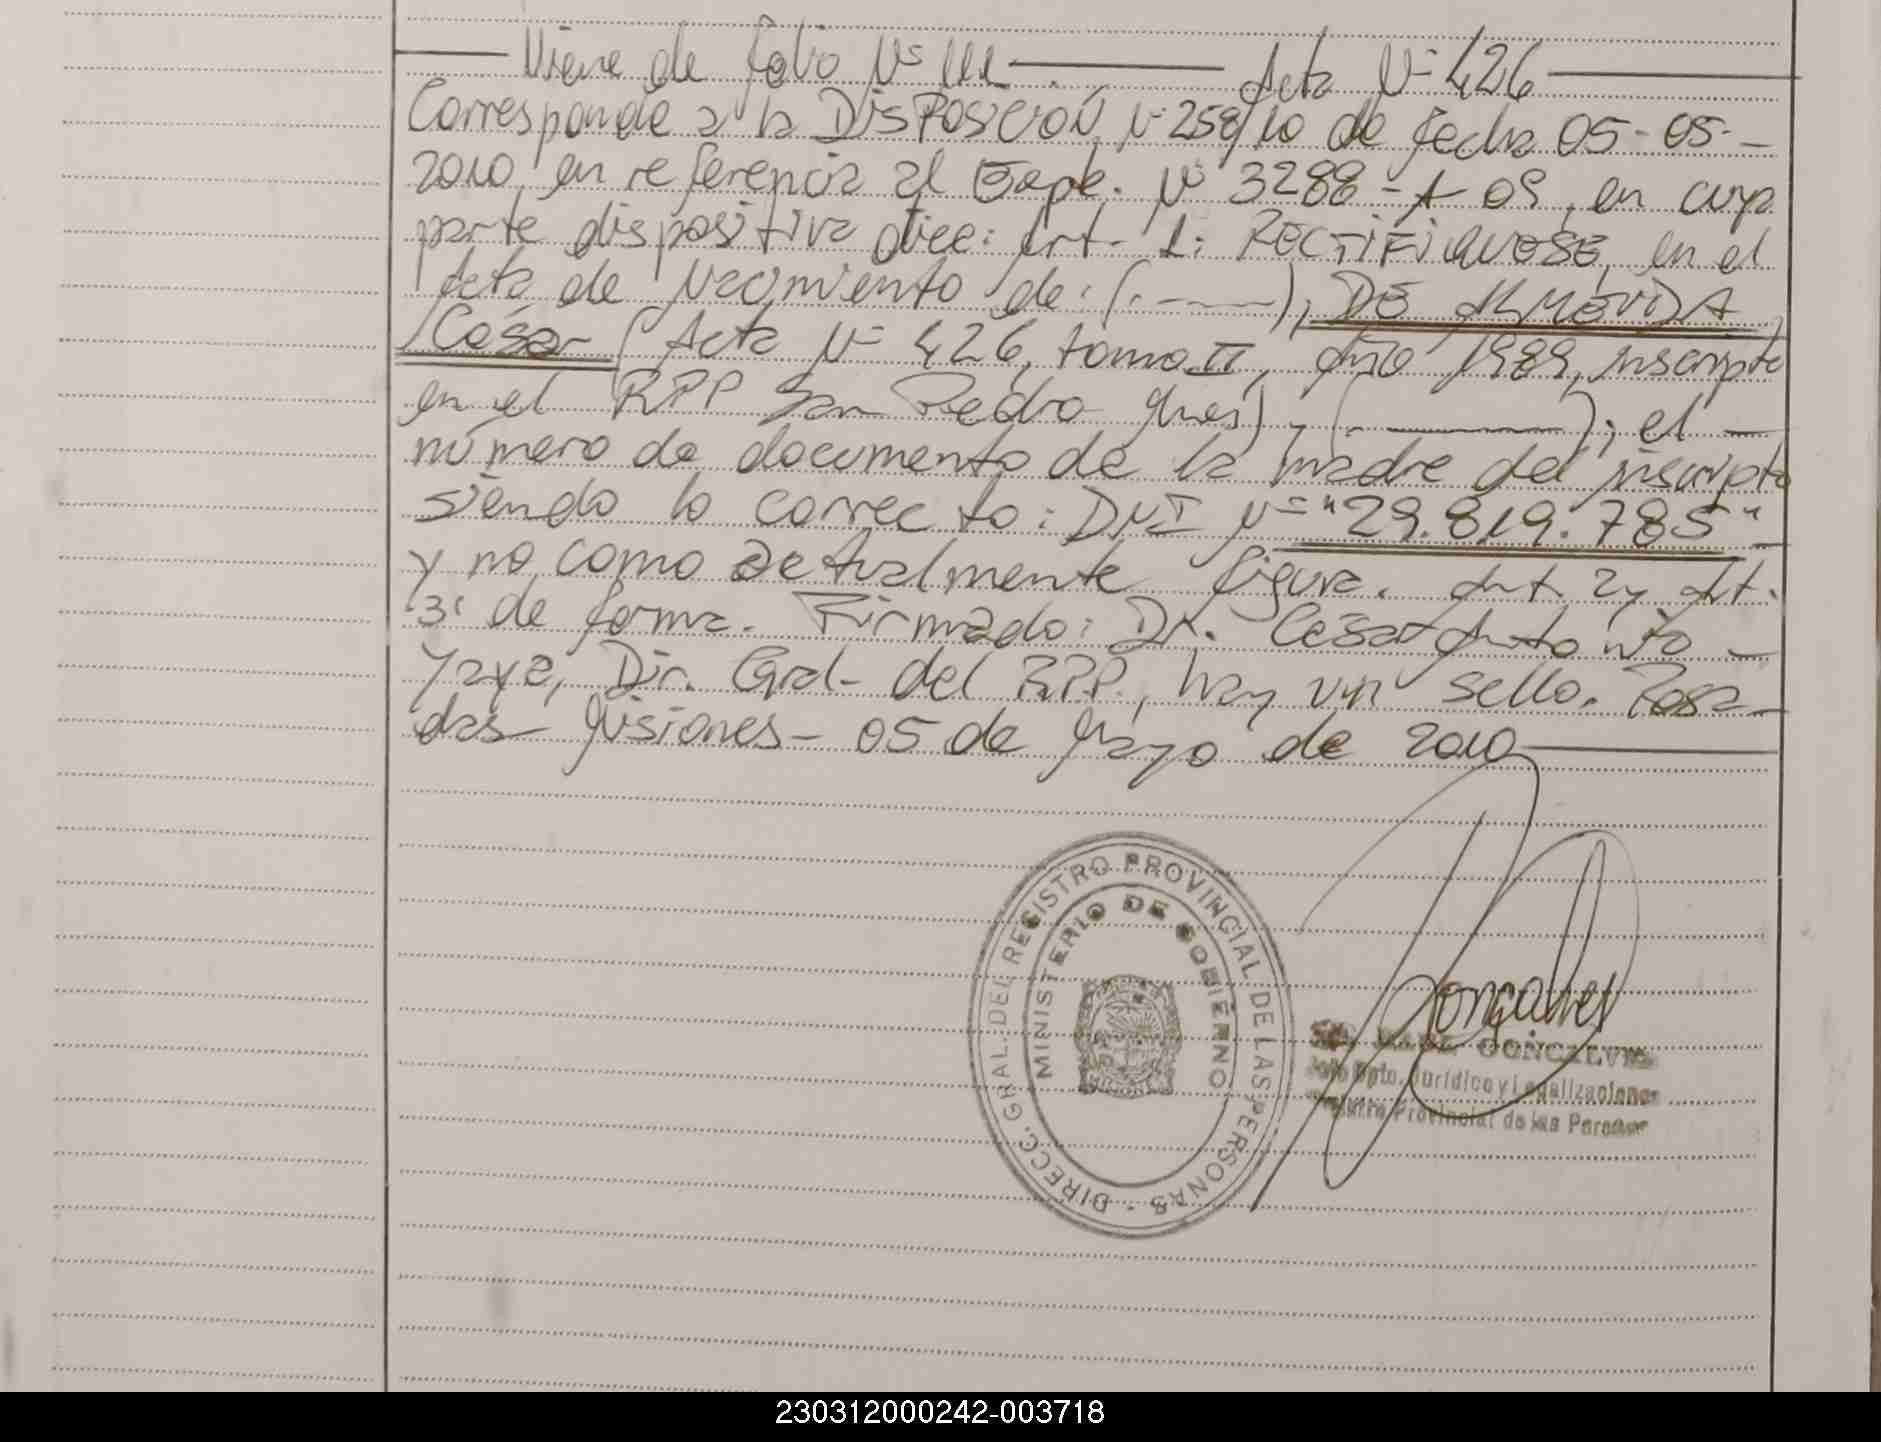 Viene de folio Nº 111 Acta Nº 426
Corresponde a la DISPOSICIÓN Nº 258/10 de fecha 05-05-
2010, en referencia al Expte. Nº 3288-A-09, en cuya
parte dispositiva dice: Art. 1: RECTIFIQUESE, en el
Acta de Nacimiento de: (.——), DE ALMEVIDA
César (Acta Nº 426, tomo II, año 1989, inscripto
en el RPP San Pedro Mnes) , (. ——); el —
número de documento de la madre del inscripto
siendo lo correcto: DNI Nº "29.819.785" —
y no como actualmente figura. Art. 2 y Art.
3: de forma. Firmado: Dr. César Antonio —
Yaya, Dir. Gral. del R.P.P., hay un sello. Posa-
das - Misiones - 05 de Mayo de 2010
DIRECC. GRAL. DEL REGISTRO PROVINCIAL DE LAS PERSONAS
MINISTERIO DE GOBIERNO
MISIONES
Gonçalves
GONÇALVES
Jefe Dpto. Jurídico y Legalizaciones
Registro Provincial de las Personas
230312000242-003718